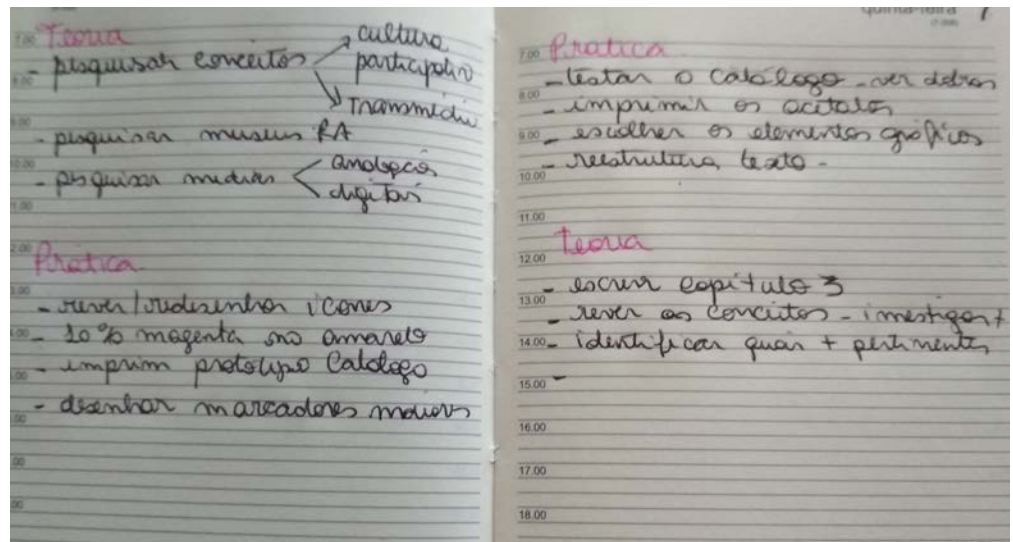 Teoria
- pesquisar conceitos
cultura
participativa
Transmédia
- pesquisar museus RA
- pesquisar medias
analógicos
digitais
Prática
- rever/redesenhar ícones
- 10% magenta no amarelo
- imprimir protótipo Catálogo
- desenhar marcadores
quinta-feira 7
Prática
- testar o catálogo - ver
- imprimir os acetatos
- escolher os elementos gráficos
- reestrutura texto -
Teoria
- escrever capítulo 3
- rever os conceitos - investigar +
- identificar quais + pertinentes
-
7.00
8.00
9.00
10.00
11.00
12.00
13.00
14.00
15.00
16.00
17.00
18.00